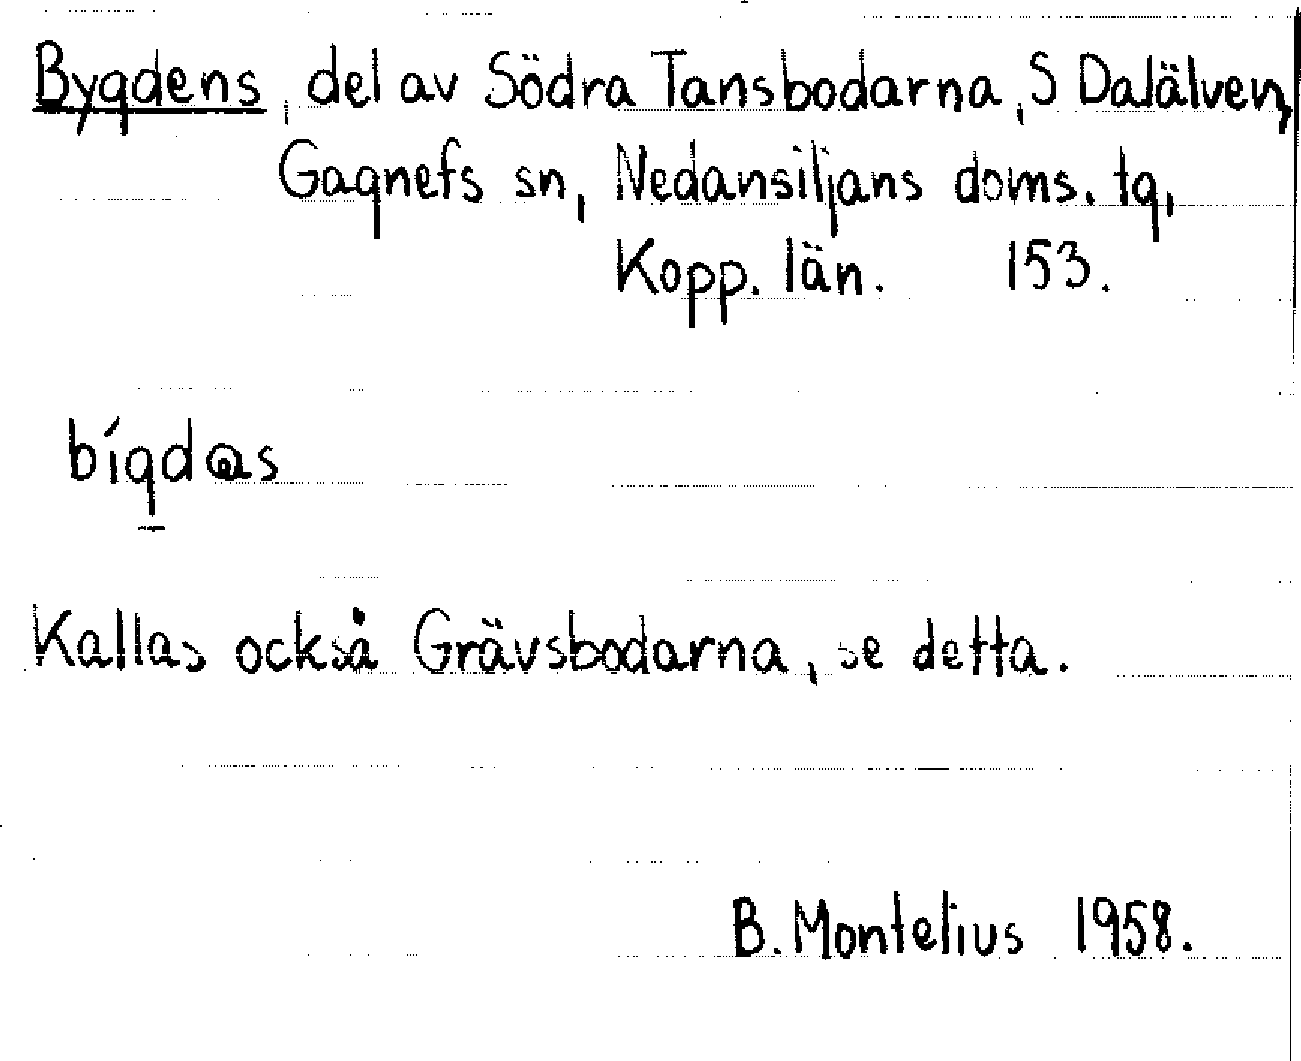 Bygdens, del av Södra Tansbodarna, S Dalälven,
Gagnefs sn, Nedansiljans doms. tg,
Kopp. län. 153.
Kallas också Grävsbodarna, se detta.
B. Montelius 1958.